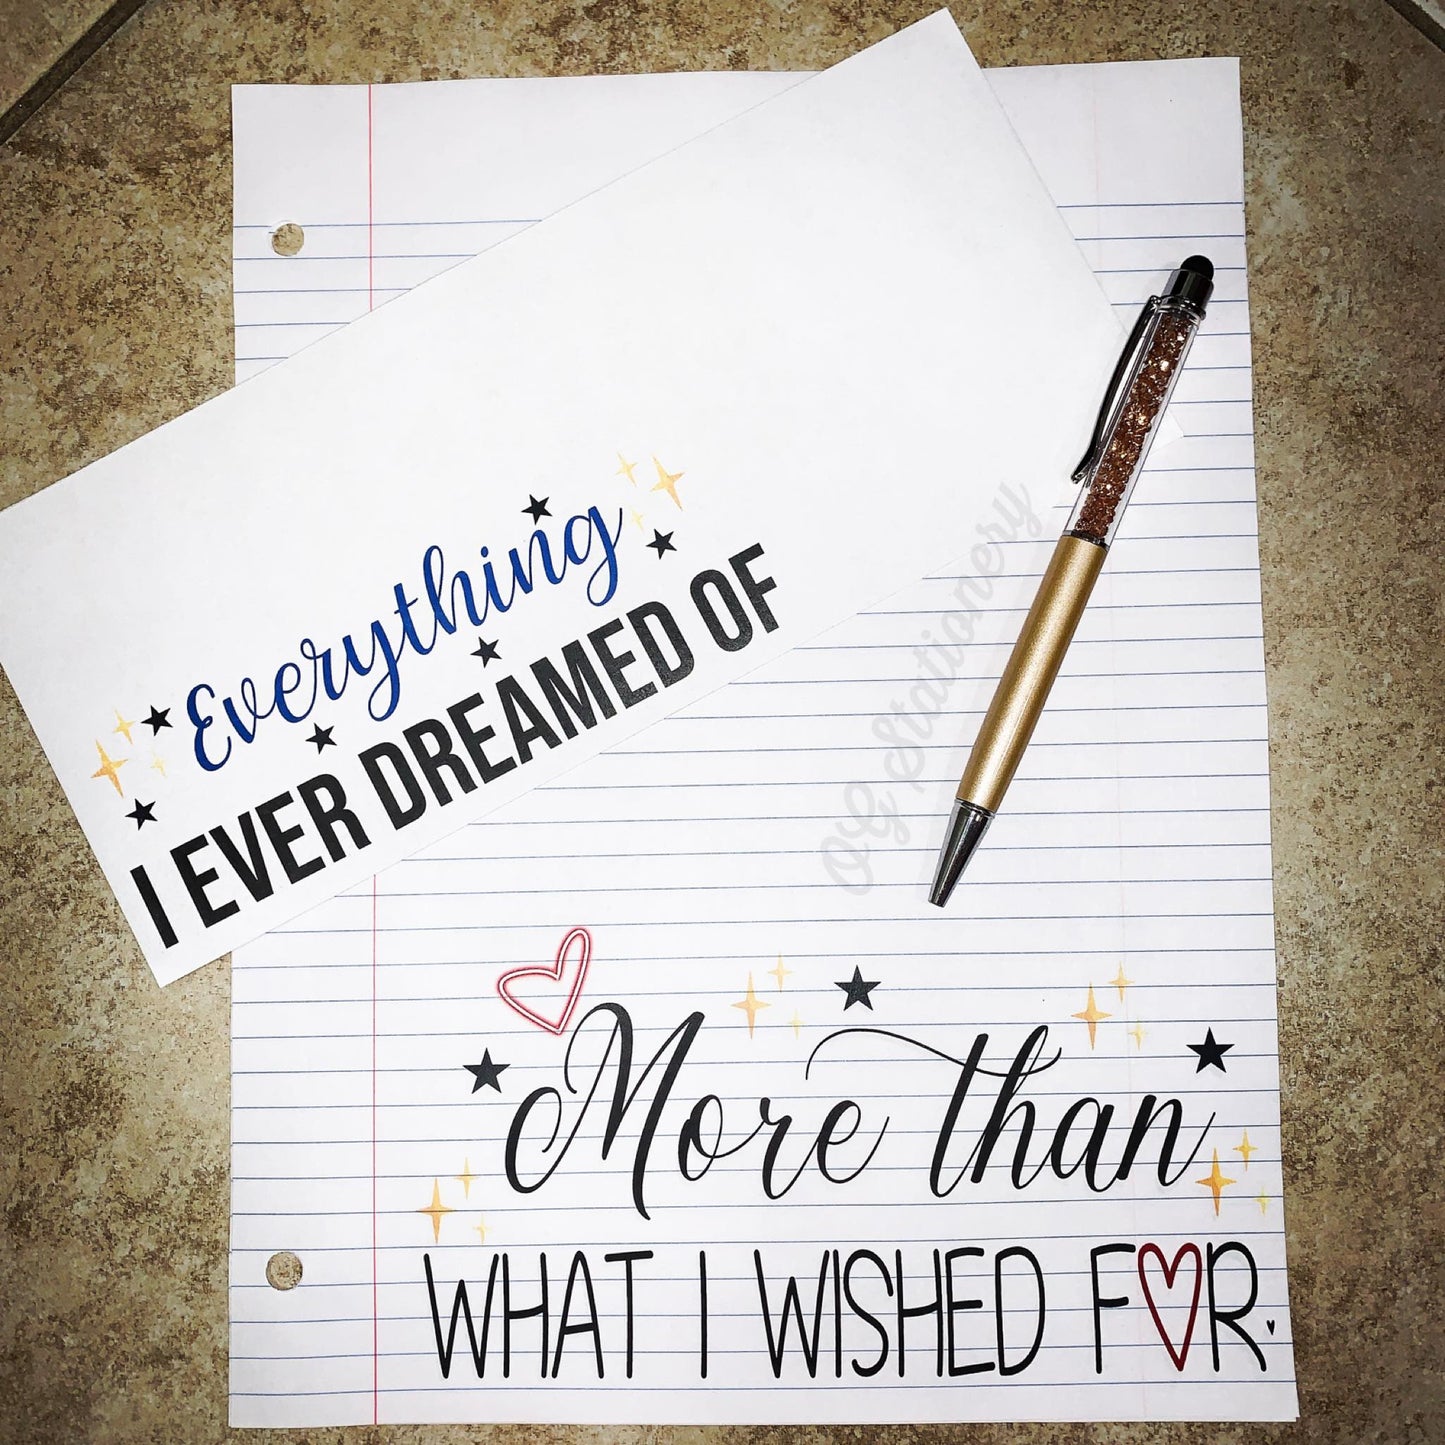 Everything
I EVER DREAMED OF
OG Stationery
More than
WHAT I WISHED FOR